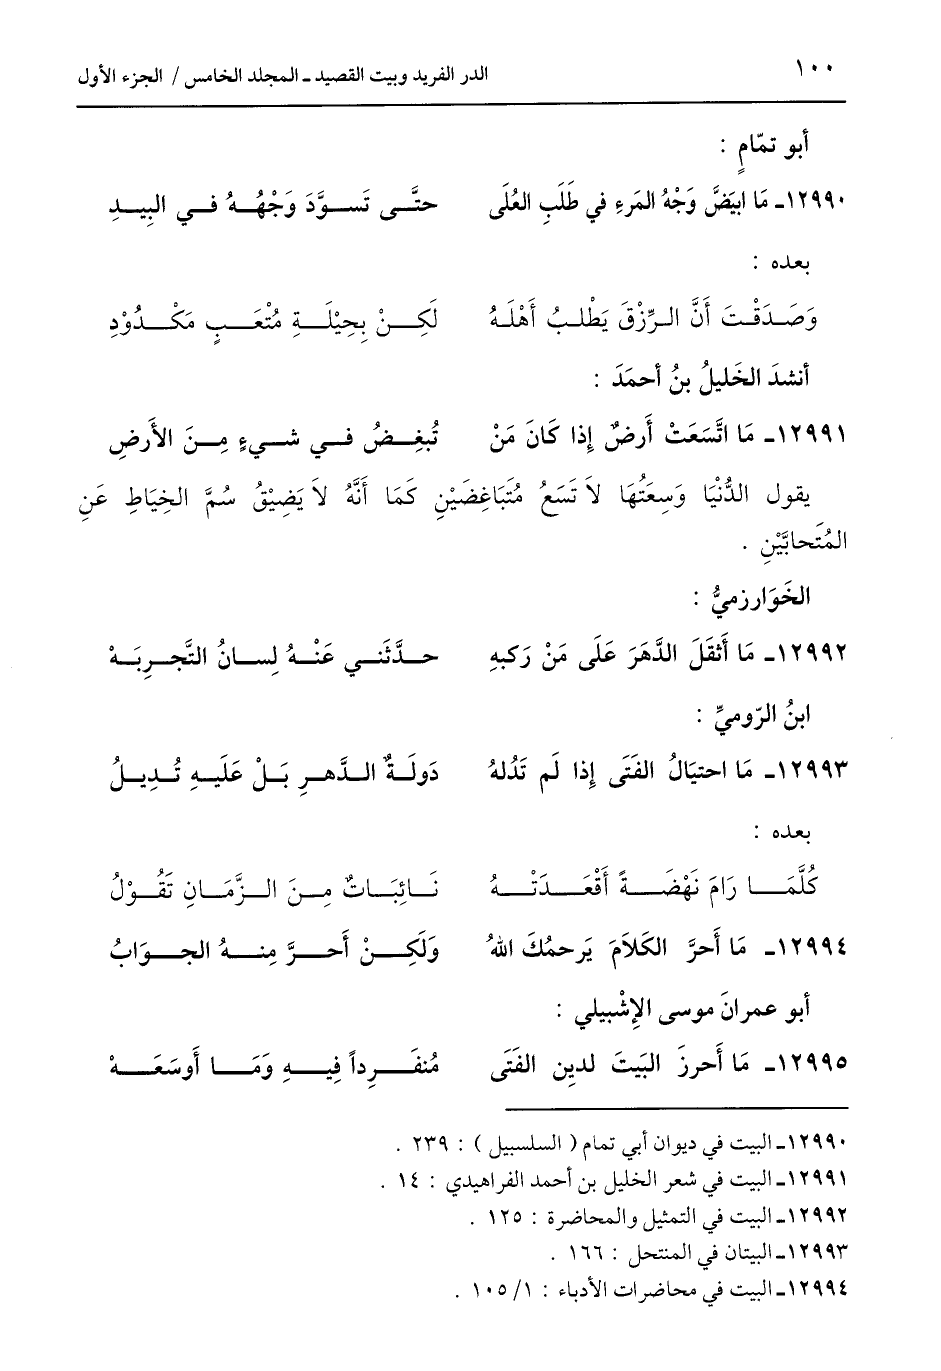 ١٠٠
الدر الفريد وبيت القصيد ـ المجلد الخامس / الجزء الأول
أبو تمّامٍ :
١٢٩٩٠ـ مَا ابيَضَّ وَجْهُ المَرءِ في طَلَبِ العُلَى حتَّى تَسوَّدَ وَجْهُهُ في البِيدِ
بعده :
وَصَدَقْتَ أَنَّ الرِّزْقَ يَطْلبُ أَهْلَهُ لَكِنْ بِحِيْلَةِ مُتْعَبٍ مَكْدُوْدِ
أنشدَ الخَليلُ بنُ أحمَدَ :
١٢٩٩١ـ مَا اتَّسَعَتْ أَرضٌ إِذا كَانَ مَنْ تُبغِضُ في شيءٍ مِنَ الأَرضِ
يقول الدُّنْيَا وَسِعَتُهَا لاَ تَسَعُ مُتَبَاغِضَيْنِ كَمَا أَنَّهُ لاَ يَضِيْقُ سُمَّ الخِيَاطِ عَنِ
المُتَحابَّيْنِ .
الخَوَارزميُّ :
١٢٩٩٢ـ مَا أَثقَلَ الدَّهرَ عَلَى مَنْ رَكبهِ حدَّثَني عَنْهُ لِسانُ التَّجرِبَهْ
ابنُ الرّوميِّ :
١٢٩٩٣ـ مَا احتيَالُ الفَتَى إِذا لَم تَدُلهُ دَولَةُ الدَّهرِ بَلْ عَلَيهِ تُديلُ
بعده :
كُلَّمَا رَامَ نَهْضَةً أَقْعَدَتْهُ نَائِبَاتٌ مِنَ الزَّمَانِ تَقُوْلُ
١٢٩٩٤ـ مَا أَحرَّ الكَلاَمَ يَرحمُكَ اللهُ وَلَكِنْ أَحرَّ مِنهُ الجوَابُ
أبو عمرانَ موسى الإِشْبيلي :
١٢٩٩٥ـ مَا أَحرزَ البَيتَ لدين الفَتَى مُنفَرداً فِيهِ وَمَا أَوسَعَهْ
١٢٩٩٠ـ البيت في ديوان أبي تمام ( السلسبيل ) : ٢٣٩ .
١٢٩٩١ـ البيت في شعر الخليل بن أحمد الفراهيدي : ١٤ .
١٢٩٩٢ـ البيت في التمثيل والمحاضرة : ١٢٥ .
١٢٩٩٣ـ البيتان في المنتحل : ١٦٦ .
١٢٩٩٤ـ البيت في محاضرات الأدباء : ١/ ١٠٥ .